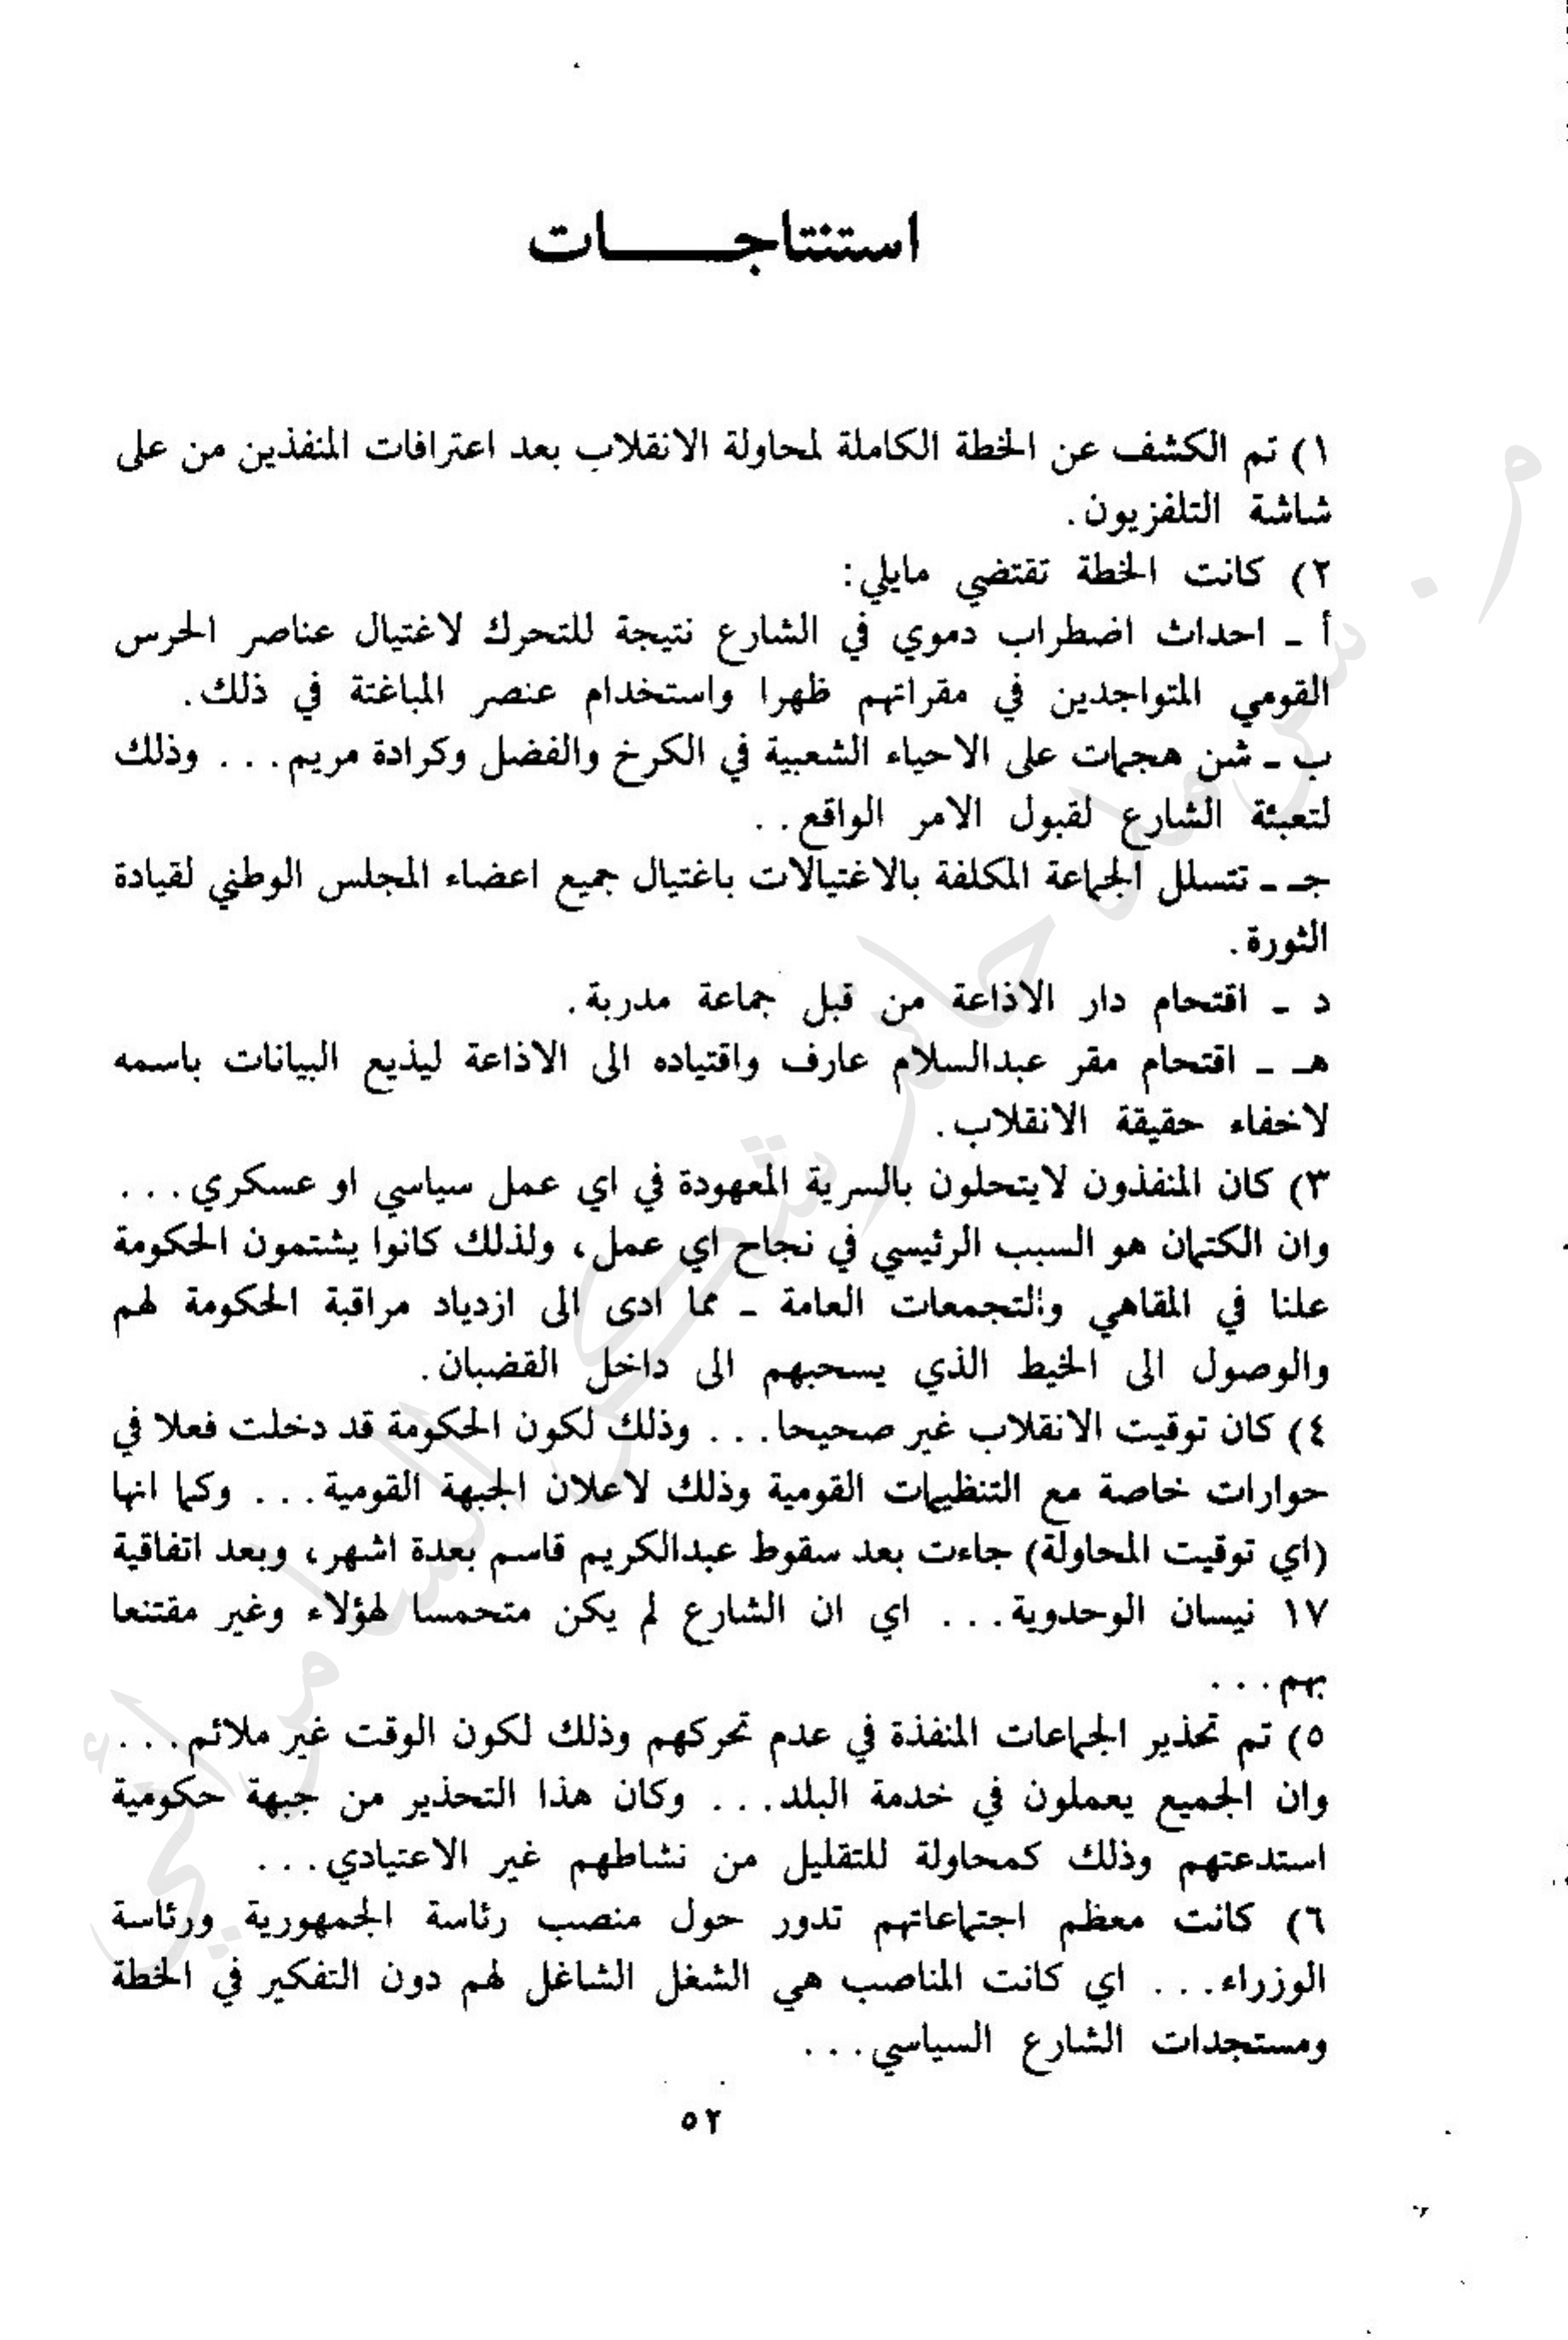 استنتاجـــــات
١) تم الكشف عن الخطة الكاملة لمحاولة الانقلاب بعد اعترافات المنفذين من على
شاشة التلفزيون.
٢) كانت الخطة تقتضي مايلي:
أ ـ احداث اضطراب دموي في الشارع نتيجة للتحرك لاغتيال عناصر الحرس
القومي المتواجدين في مقراتهم ظهرا واستخدام عنصر المباغتة في ذلك.
ب ـ شن هجمات على الاحياء الشعبية في الكرخ والفضل وكرادة مريم... وذلك
لتعبئة الشارع لقبول الامر الواقع..
جـ ـ تتسلل الجماعة المكلفة بالاغتيالات باغتيال جميع اعضاء المجلس الوطني لقيادة
الثورة.
د ـ اقتحام دار الاذاعة من قبل جماعة مدربة.
هـ ـ اقتحام مقر عبدالسلام عارف واقتياده الى الاذاعة ليذيع البيانات باسمه
لاخفاء حقيقة الانقلاب.
٣) كان المنفذون لايتحلون بالسرية المعهودة في اي عمل سياسي او عسكري...
وان الكتمان هو السبب الرئيسي في نجاح اي عمل، ولذلك كانوا يشتمون الحكومة
علنا في المقاهي والتجمعات العامة ـ مما ادى الى ازدياد مراقبة الحكومة لهم
والوصول الى الخيط الذي يسحبهم الى داخل القضبان.
٤) كان توقيت الانقلاب غير صحيحا... وذلك لكون الحكومة قد دخلت فعلا في
حوارات خاصة مع التنظيمات القومية وذلك لاعلان الجبهة القومية... وكما انها
(اي توقيت المحاولة) جاءت بعد سقوط عبدالكريم قاسم بعدة اشهر، وبعد اتفاقية
١٧ نيسان الوحدوية... اي ان الشارع لم يكن متحمسا لهؤلاء وغير مقتنعا
بهم...
٥) تم تحذير الجماعات المنفذة في عدم تحركهم وذلك لكون الوقت غير ملائم...
وان الجميع يعملون في خدمة البلد... وكان هذا التحذير من جبهة حكومية
استدعتهم وذلك كمحاولة للتقليل من نشاطهم غير الاعتيادي...
٦) كانت معظم اجتماعاتهم تدور حول منصب رئاسة الجمهورية ورئاسة
الوزراء... اي كانت المناصب هي الشغل الشاغل لهم دون التفكير في الخطة
ومستجدات الشارع السياسي...
٥٢